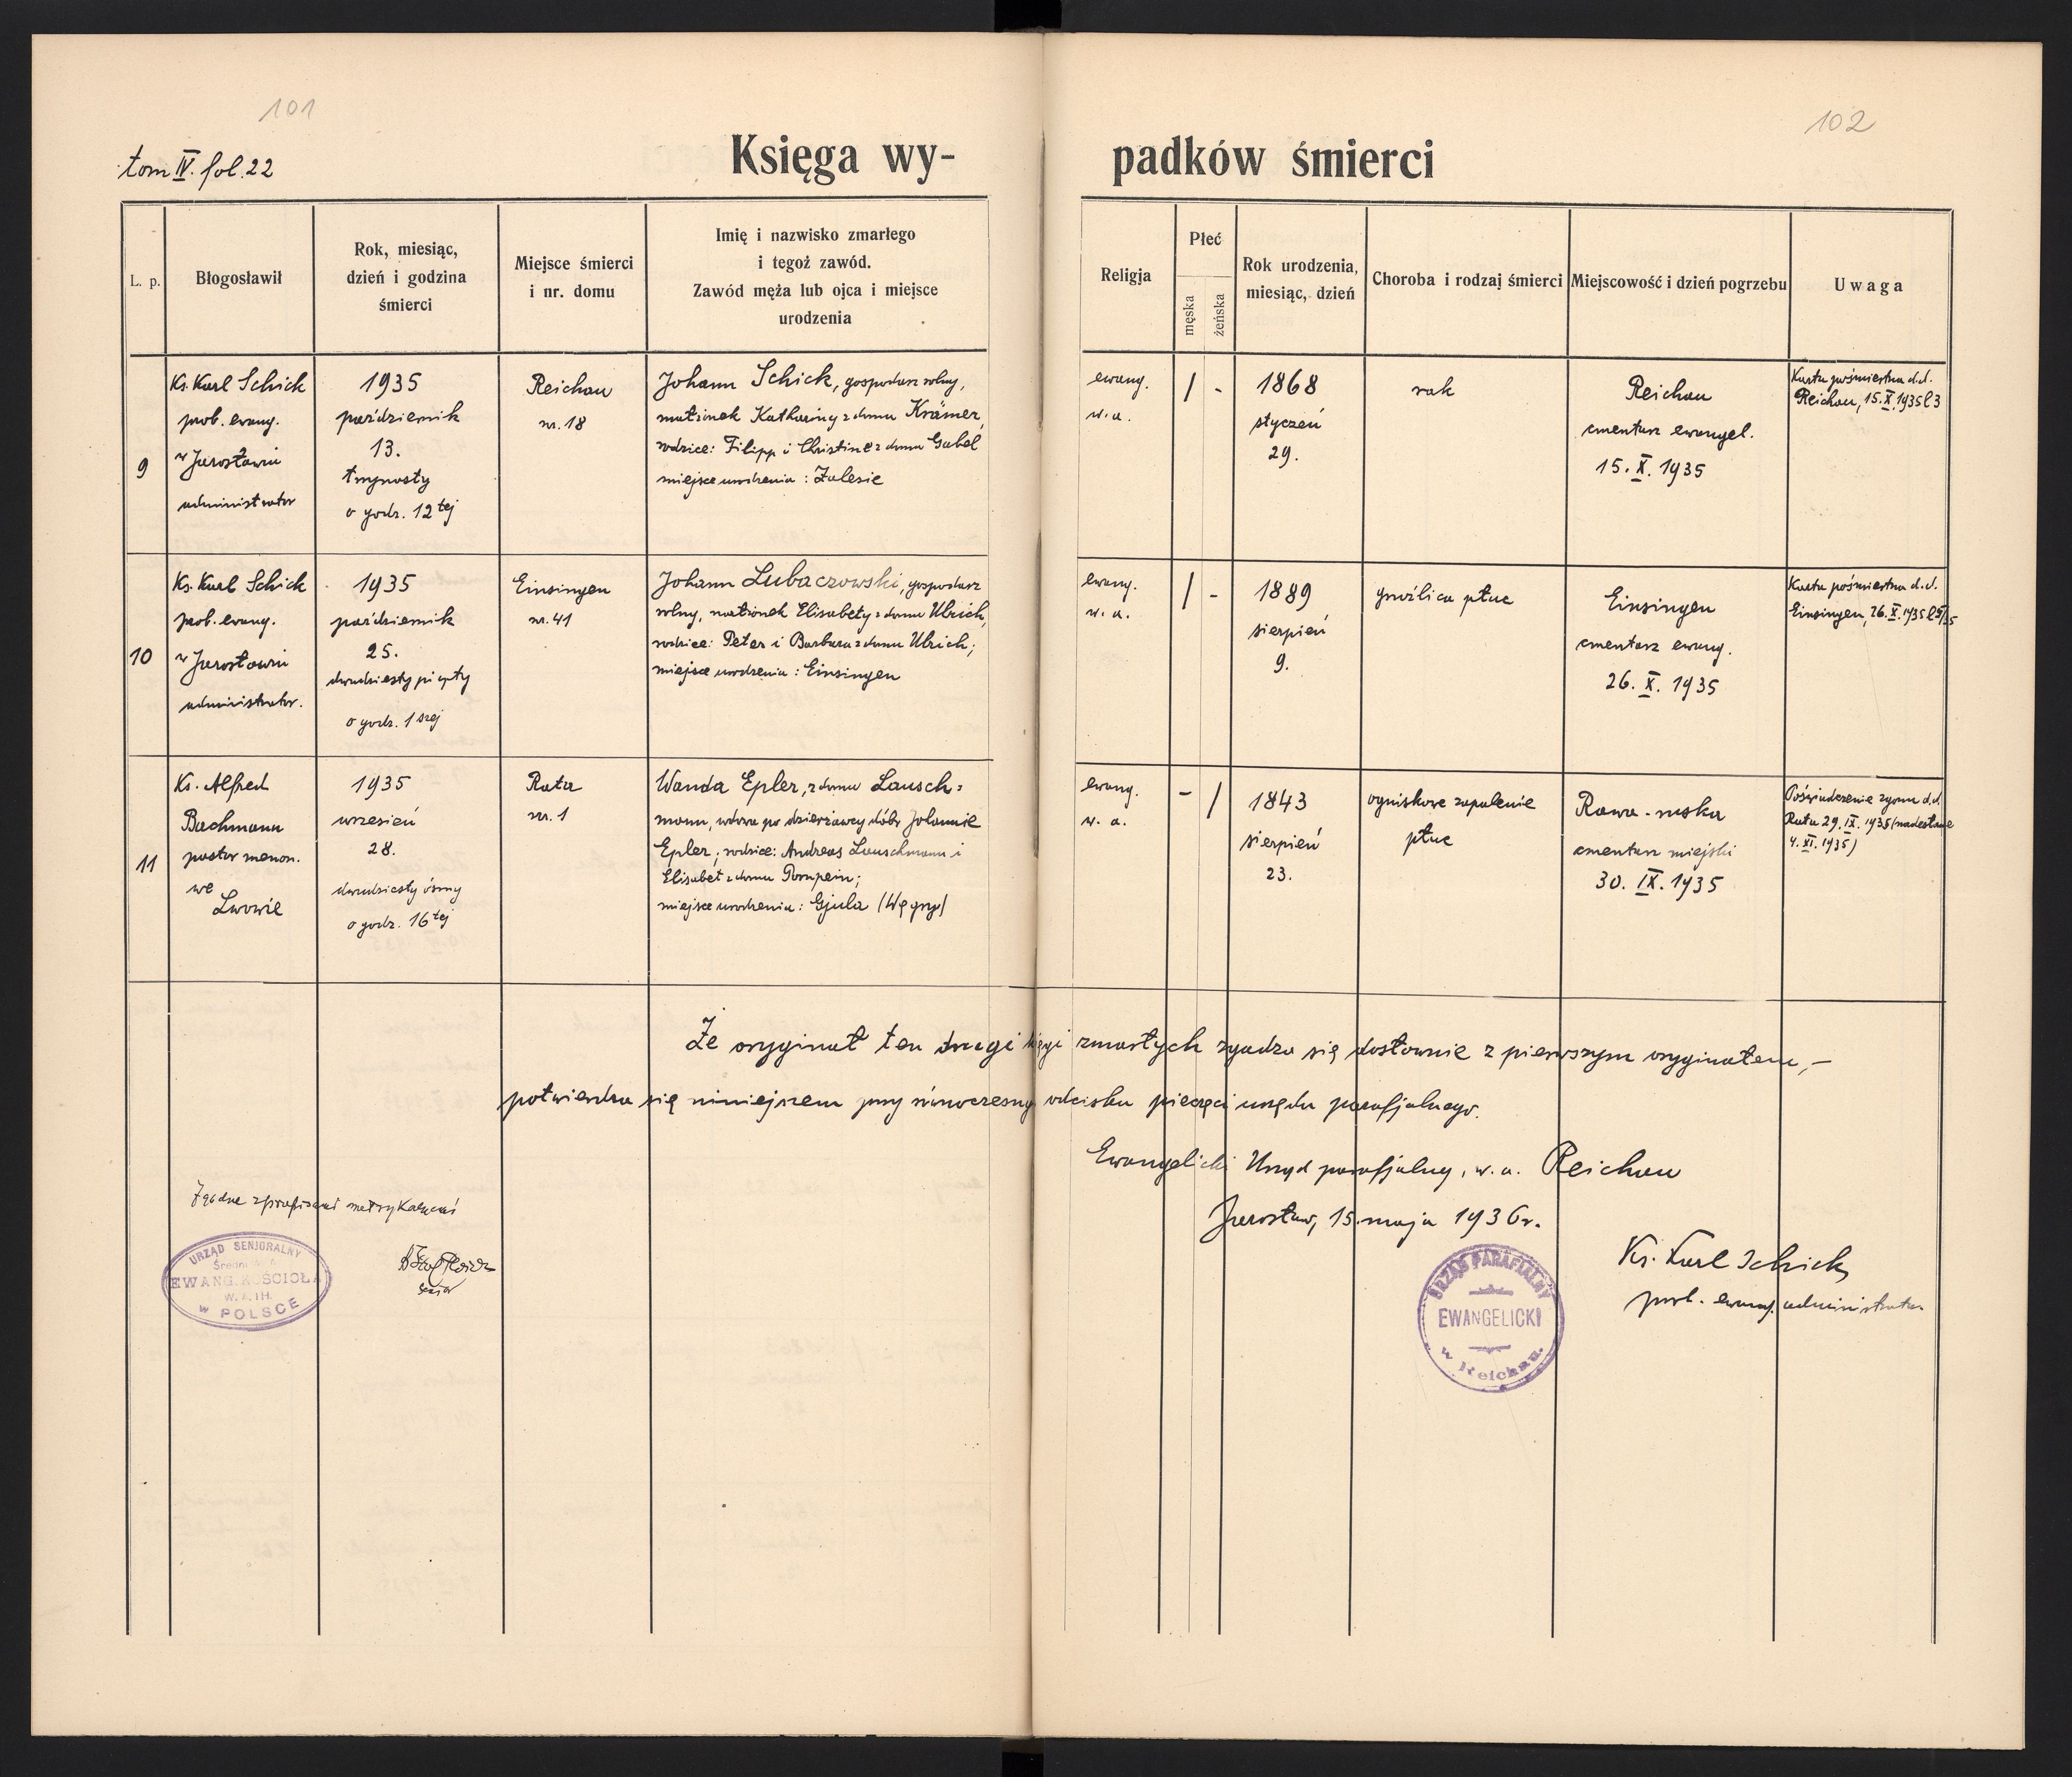 101
102
tom IV. fol. 22
Księga wy-
padków śmierci
L. p.
Błogosławił
Rok, miesiąc,
dzień i godzina
śmierci
Miejsce śmierci
i nr. domu
Imię i nazwisko zmarłego
i tegoż zawód.
Zawód męża lub ojca i miejsce
urodzenia
Religja
Płeć
męska
żeńska
Rok urodzenia,
miesiąc, dzień
Choroba i rodzaj śmierci
Miejscowość i dzień pogrzebu
Uwaga
9
Ks. Karl Schick
prob. ewang.
w Jarosławiu
administrator
1935
październik
13.
trzynasty
o godz. 12tej
Reichau
nr. 18
Johann Schick, gospodarz rolny,
małżonek Kathariny z domu Krämer,
rodzice: Filipp i Christine z domu Gabel
miejsce urodzenia: Zalesie
ewang.
w. a.
/
-
1868
styczeń
29.
rak
Reichau
cmentarz ewangel.
15. X. 1935
Karta pośmiertna d.d.
Reichau, 15. X. 1935 l 3
10
Ks. Karl Schick
prob. ewang.
w Jarosławiu
administrator.
1935
październik
25.
dwudziesty piąty
o godz. 1szej
Einsingen
nr. 41
Johann Lubaczowski, gospodarz
rolny, małżonek Elisabety z domu Ulrich,
rodzice: Peter i Barbara z domu Ulrich;
miejsce urodzenia: Einsingen
ewang.
w. a.
/
-
1889
sierpień
9.
gruźlica płuc
Einsingen
cmentarz ewang.
26. X. 1935
Karta pośmiertna d.d.
Einsingen, 26. X. 1935
11
Ks. Alfred
Bachmann
pastor menon.
we
Lwowie
1935
wrzesień
28.
dwudziesty ósmy
o godz. 16tej
Rata
nr. 1
Wanda Epler, z domu Lausch-
mann, wdowa po dzierżawcy dóbr Johannie
Epler; rodzice: Andreas Lauschmann i
Elisabet z domu Pompein;
miejsce urodzenia: Gjula (Węgry)
ewang.
w. a.
-
/
1843
sierpień
23.
ogniskowe zapalenie
płuc
Rawa-ruska
cmentarz miejski
30. IX. 1935
Poświadczenie zgonu d.d.
Rata 29. IX. 1935 (nadesłane
4. XI. 1935)
Że oryginał ten drugi księgi zmarłych zgadza się dosłownie z pierwszym oryginałem,—
potwierdza się niniejszem przy równoczesnym odcisku pieczęci urzędu parafjalnego.
Ewangelicki Urząd parafjalny, w. a. Reichau
Jarosław, 15. maja 1936 r.
Ks. Karl Schick
prob. ewang. administrator
Zgodne z przepisami metrykalnemi
senior
URZĄD SENJORALNY
EWANG. KOŚCIOŁA
W. A. I H.
w POLSCE
URZĄD PARAFIALNY
EWANGELICKI
w Reichau.